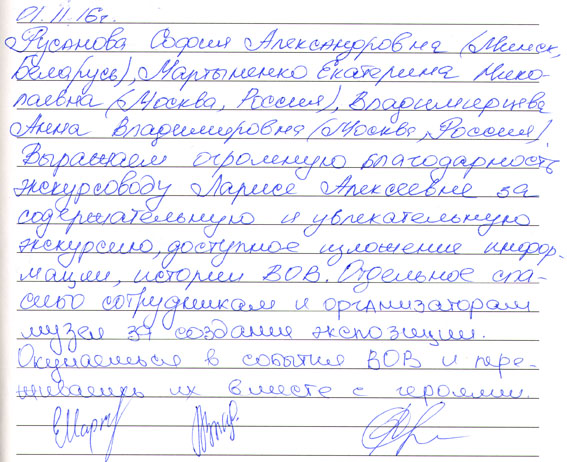 01.11.16г.
Русанова София Александровна (Минск,
Беларусь), Мартыненко Екатерина Нико-
лаевна (Москва, Россия), Владимирцева
Анна Владимировна (Москва, Россия)
Выражаем огромную благодарность
экскурсоводу Ларисе Алексеевне за
содержательную и увлекательную
экскурсию, доступное изложение инфор-
мации, истории ВОВ. Отдельное спа-
сибо сотрудникам и организаторам
музея за создание экспозиции.
Окунаешься в события ВОВ и пере-
живаешь их вместе с героями.
ЕМарт